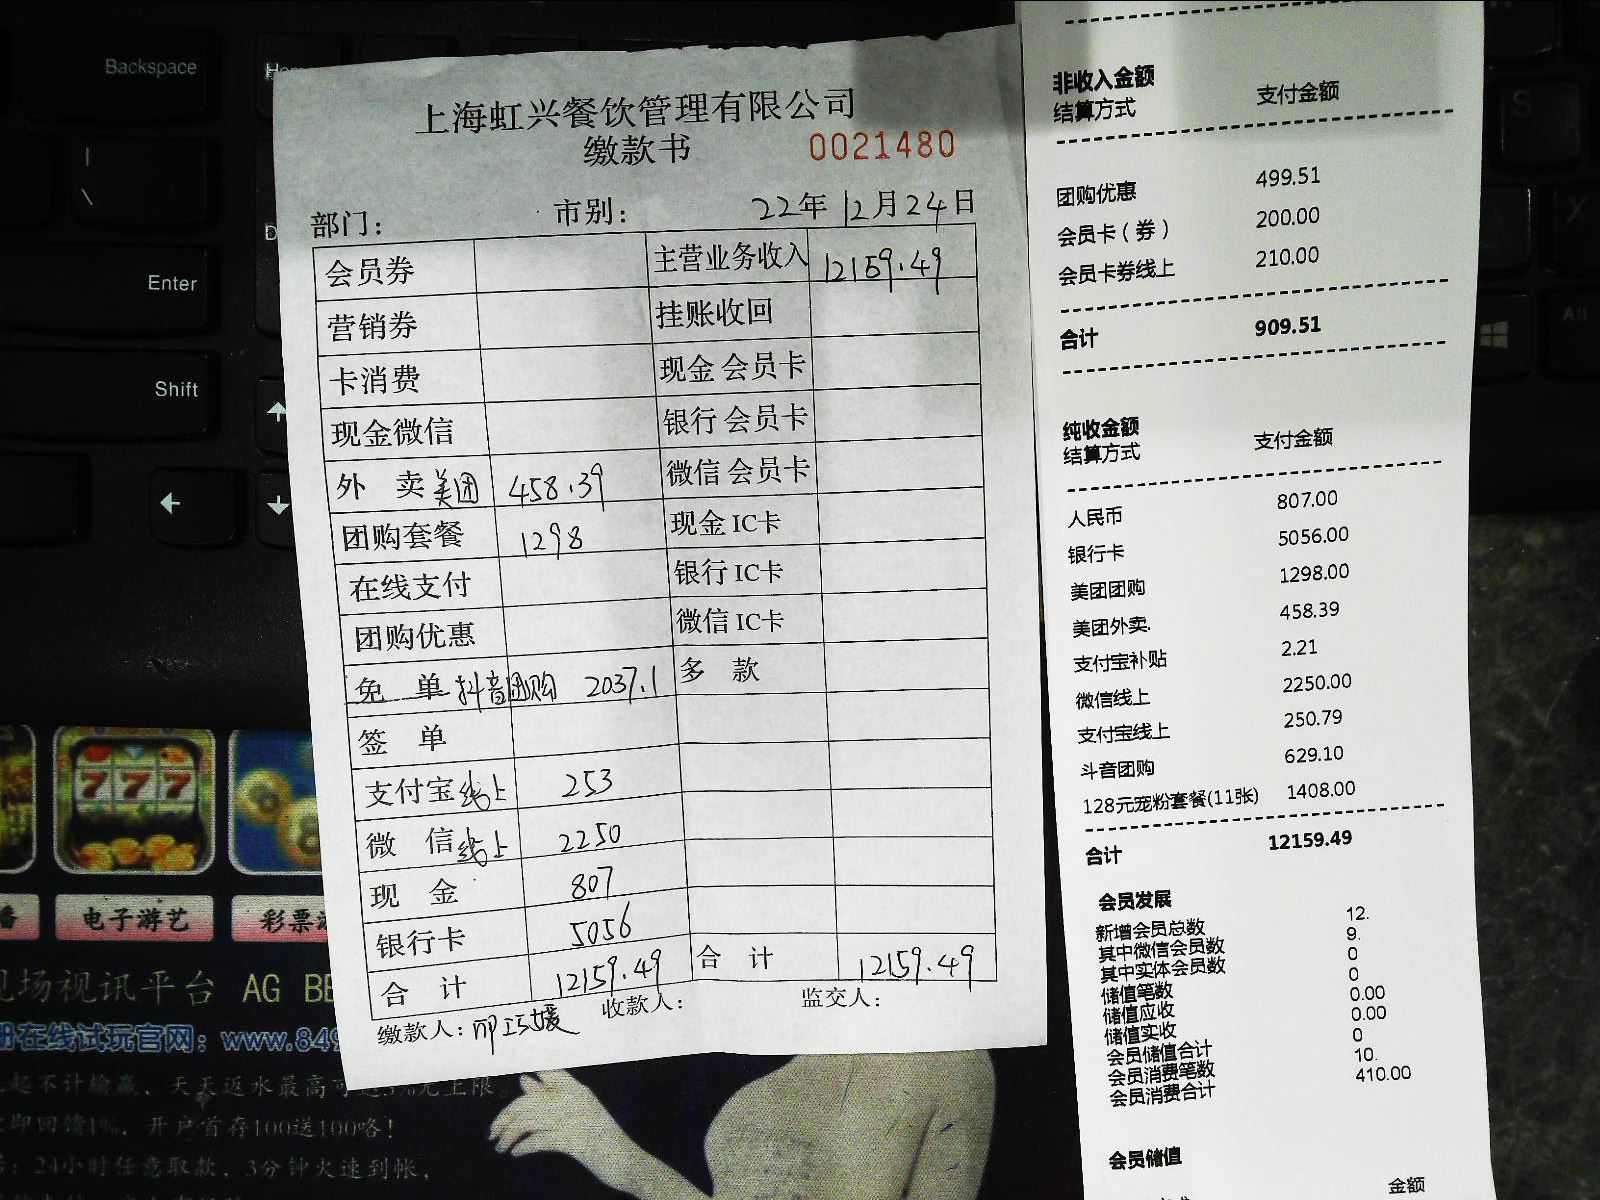 Backspace
Enter
Shift
上海虹兴餐饮管理有限公司
缴款书 0021480
部门: 市别: 22年12月24日
会员券 主营业务收入 12159.49
营销券 挂账收回
卡消费 现金会员卡
现金微信 银行会员卡
外卖美团 458.39 微信会员卡
团购套餐 1298 现金IC卡
在线支付 银行IC卡
团购优惠 微信IC卡
免单抖音团购 2037.1 多款
签单
支付宝线上 253
微信线上 2250
现金 807
银行卡 5056
合计 12159.49 合计 12159.49
缴款人: 收款人: 监交人:
非收入金额
结算方式 支付金额
团购优惠 499.51
会员卡(券) 200.00
会员卡券线上 210.00
合计 909.51
纯收金额
结算方式 支付金额
人民币 807.00
银行卡 5056.00
美团团购 1298.00
美团外卖. 458.39
支付宝补贴 2.21
微信线上 2250.00
支付宝线上 250.79
斗音团购 629.10
128元宠粉套餐(11张) 1408.00
合计 12159.49
会员发展
新增会员总数 12.
其中微信会员数 9.
其中实体会员数 0
储值笔数 0
储值应收 0.00
储值实收 0.00
会员储值合计 0
会员消费笔数 10.
会员消费合计 410.00
会员储值
金额
S
X
Alt
番 电子游艺 彩票
现场视讯平台 AG
册在线试玩官网: www.849
起不计输赢, 天天返水最高可 无上限。
即回馈1%, 开户首存100送100咯!
: 24小时任意取款, 3分钟火速到帐,